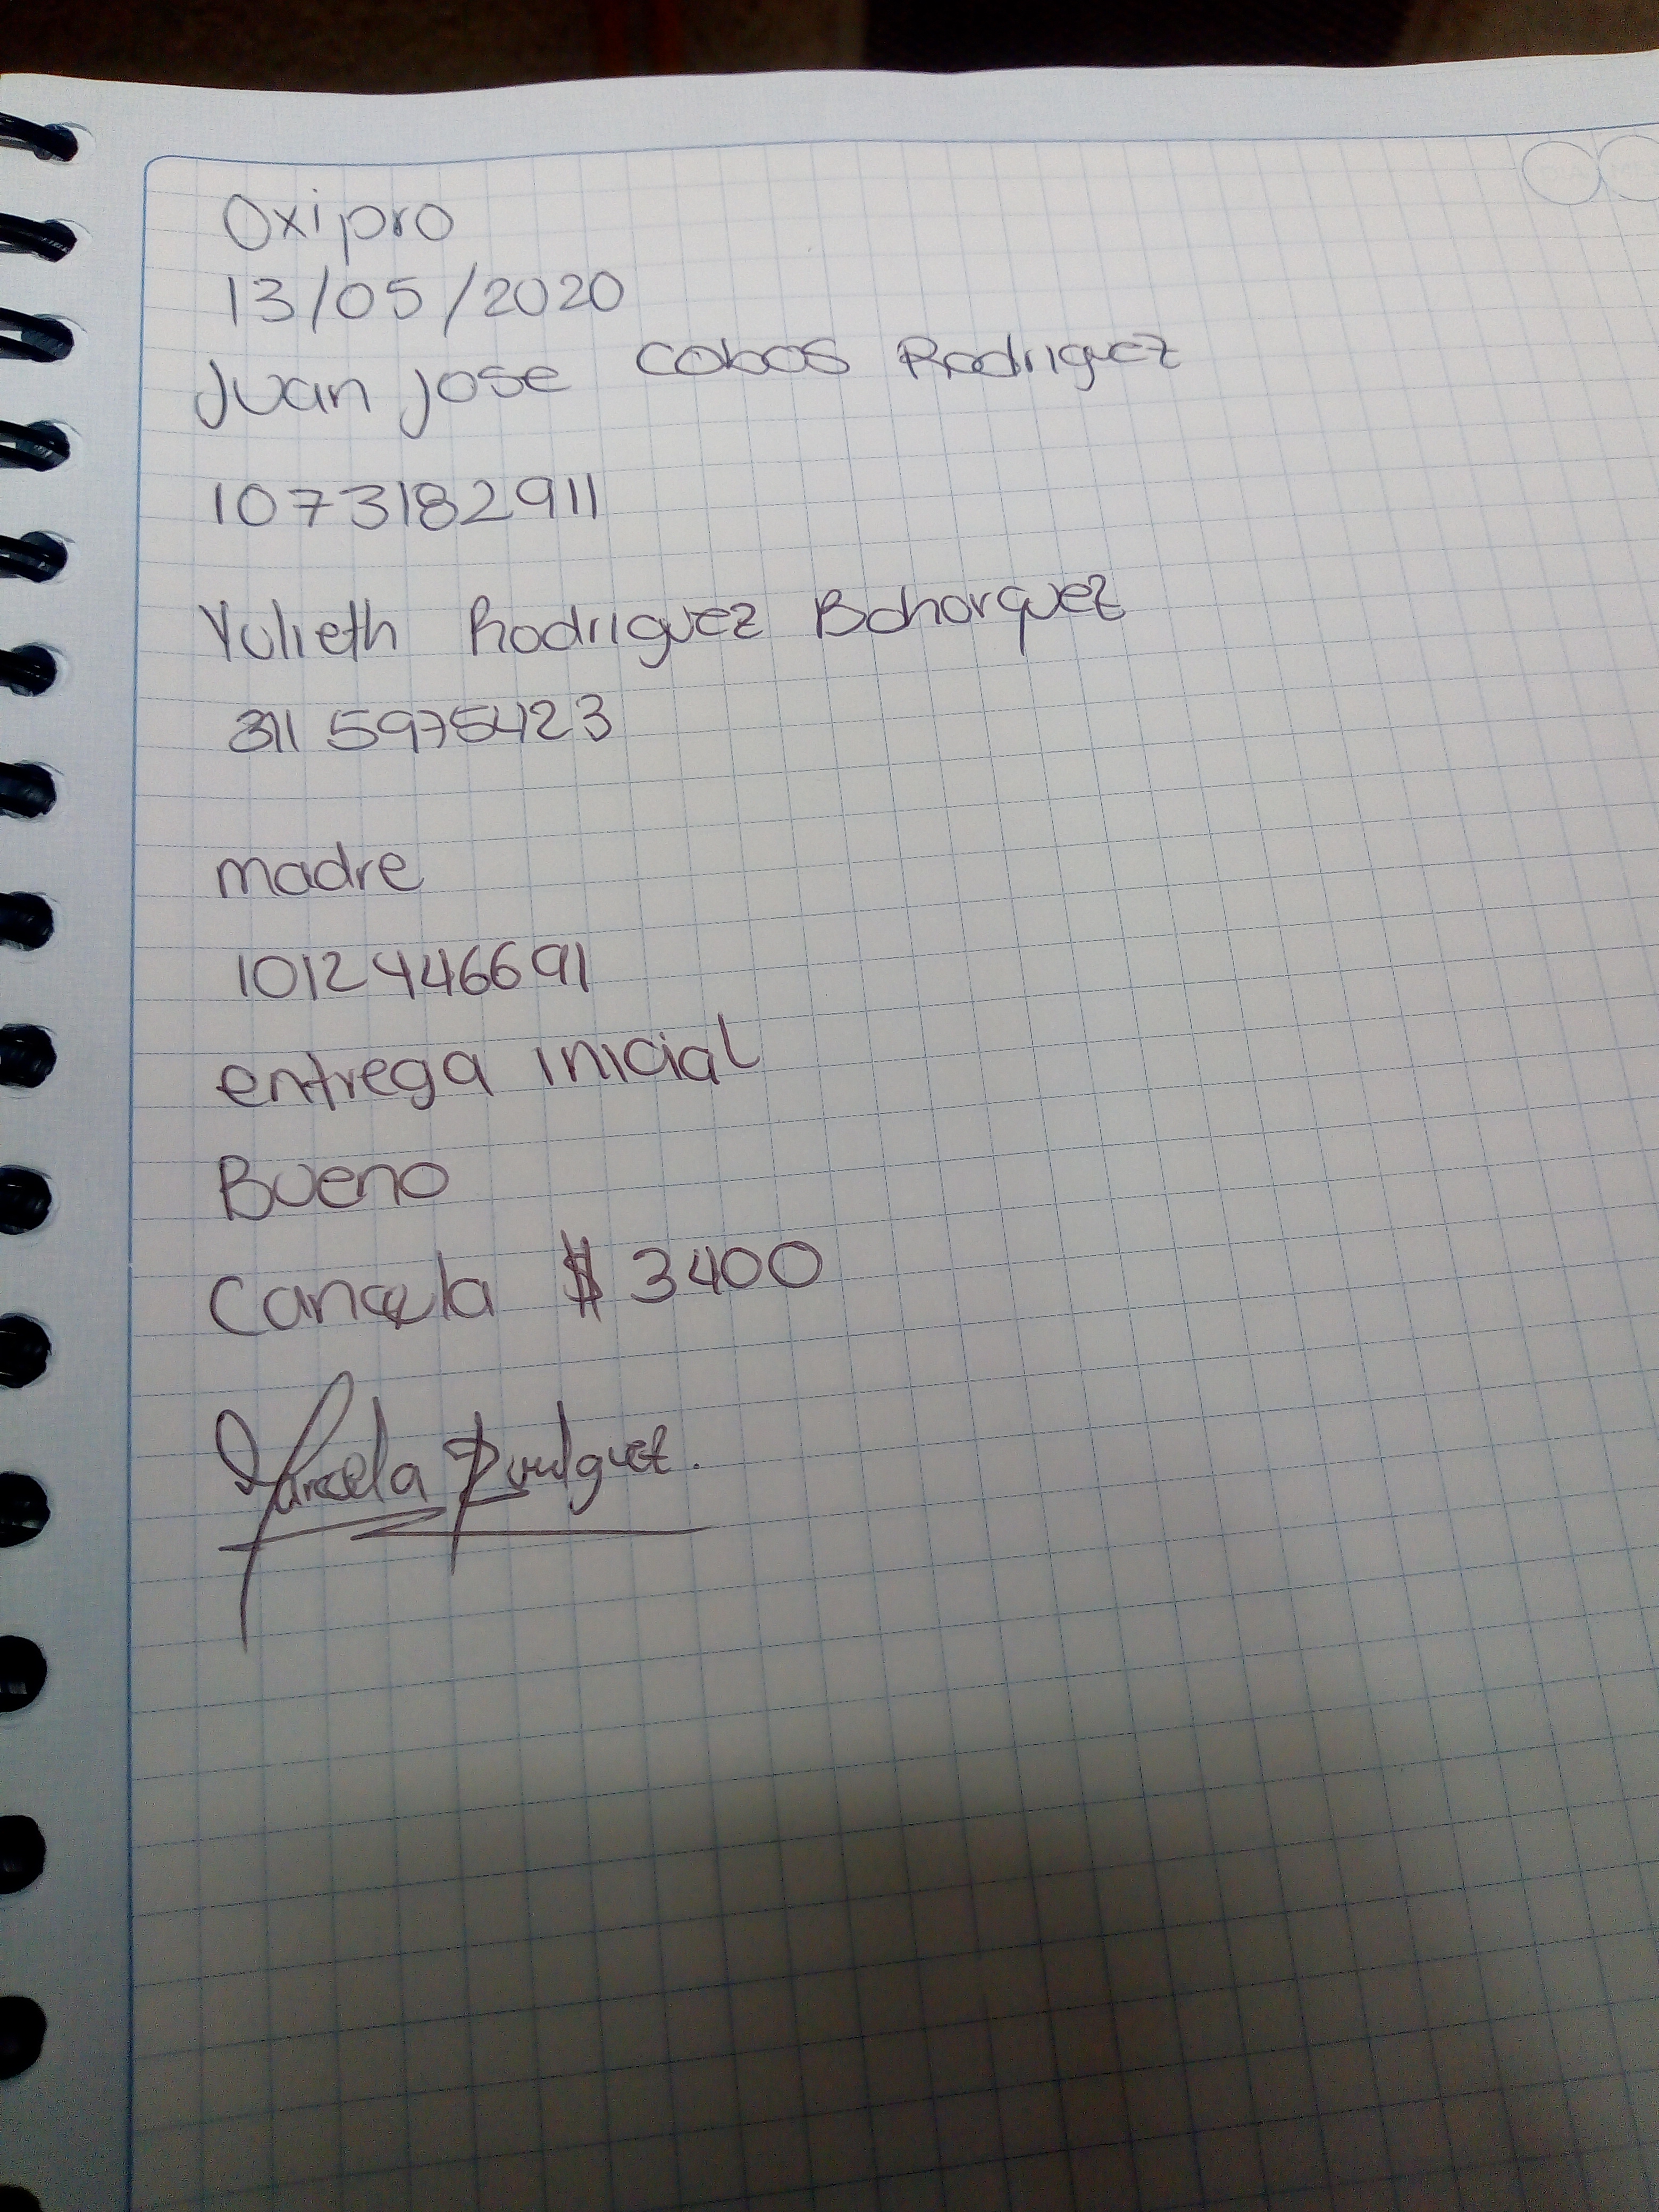 Oxipro
13/05/2020
Juan jose Cobos Rodriguez
1073182911
Yulieth Rodriguez Bohorquez
311 5975423
madre
1012446691
entrega inicial
Bueno
Cancela $ 3400
Marcela Rodriguez.